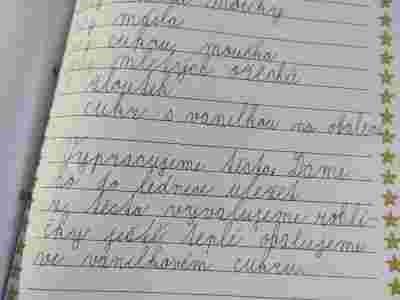 mouchy
g másla
g cukrou moučka
g mletých ořechů
žloutek
cukr s vanilkou na obalení
Vypracujeme těsto. Dáme
ho do lednice uležet
z těsta vyvalujeme rohlí-
čky ještě teplé obalujeme
ve vanilkovém cukru